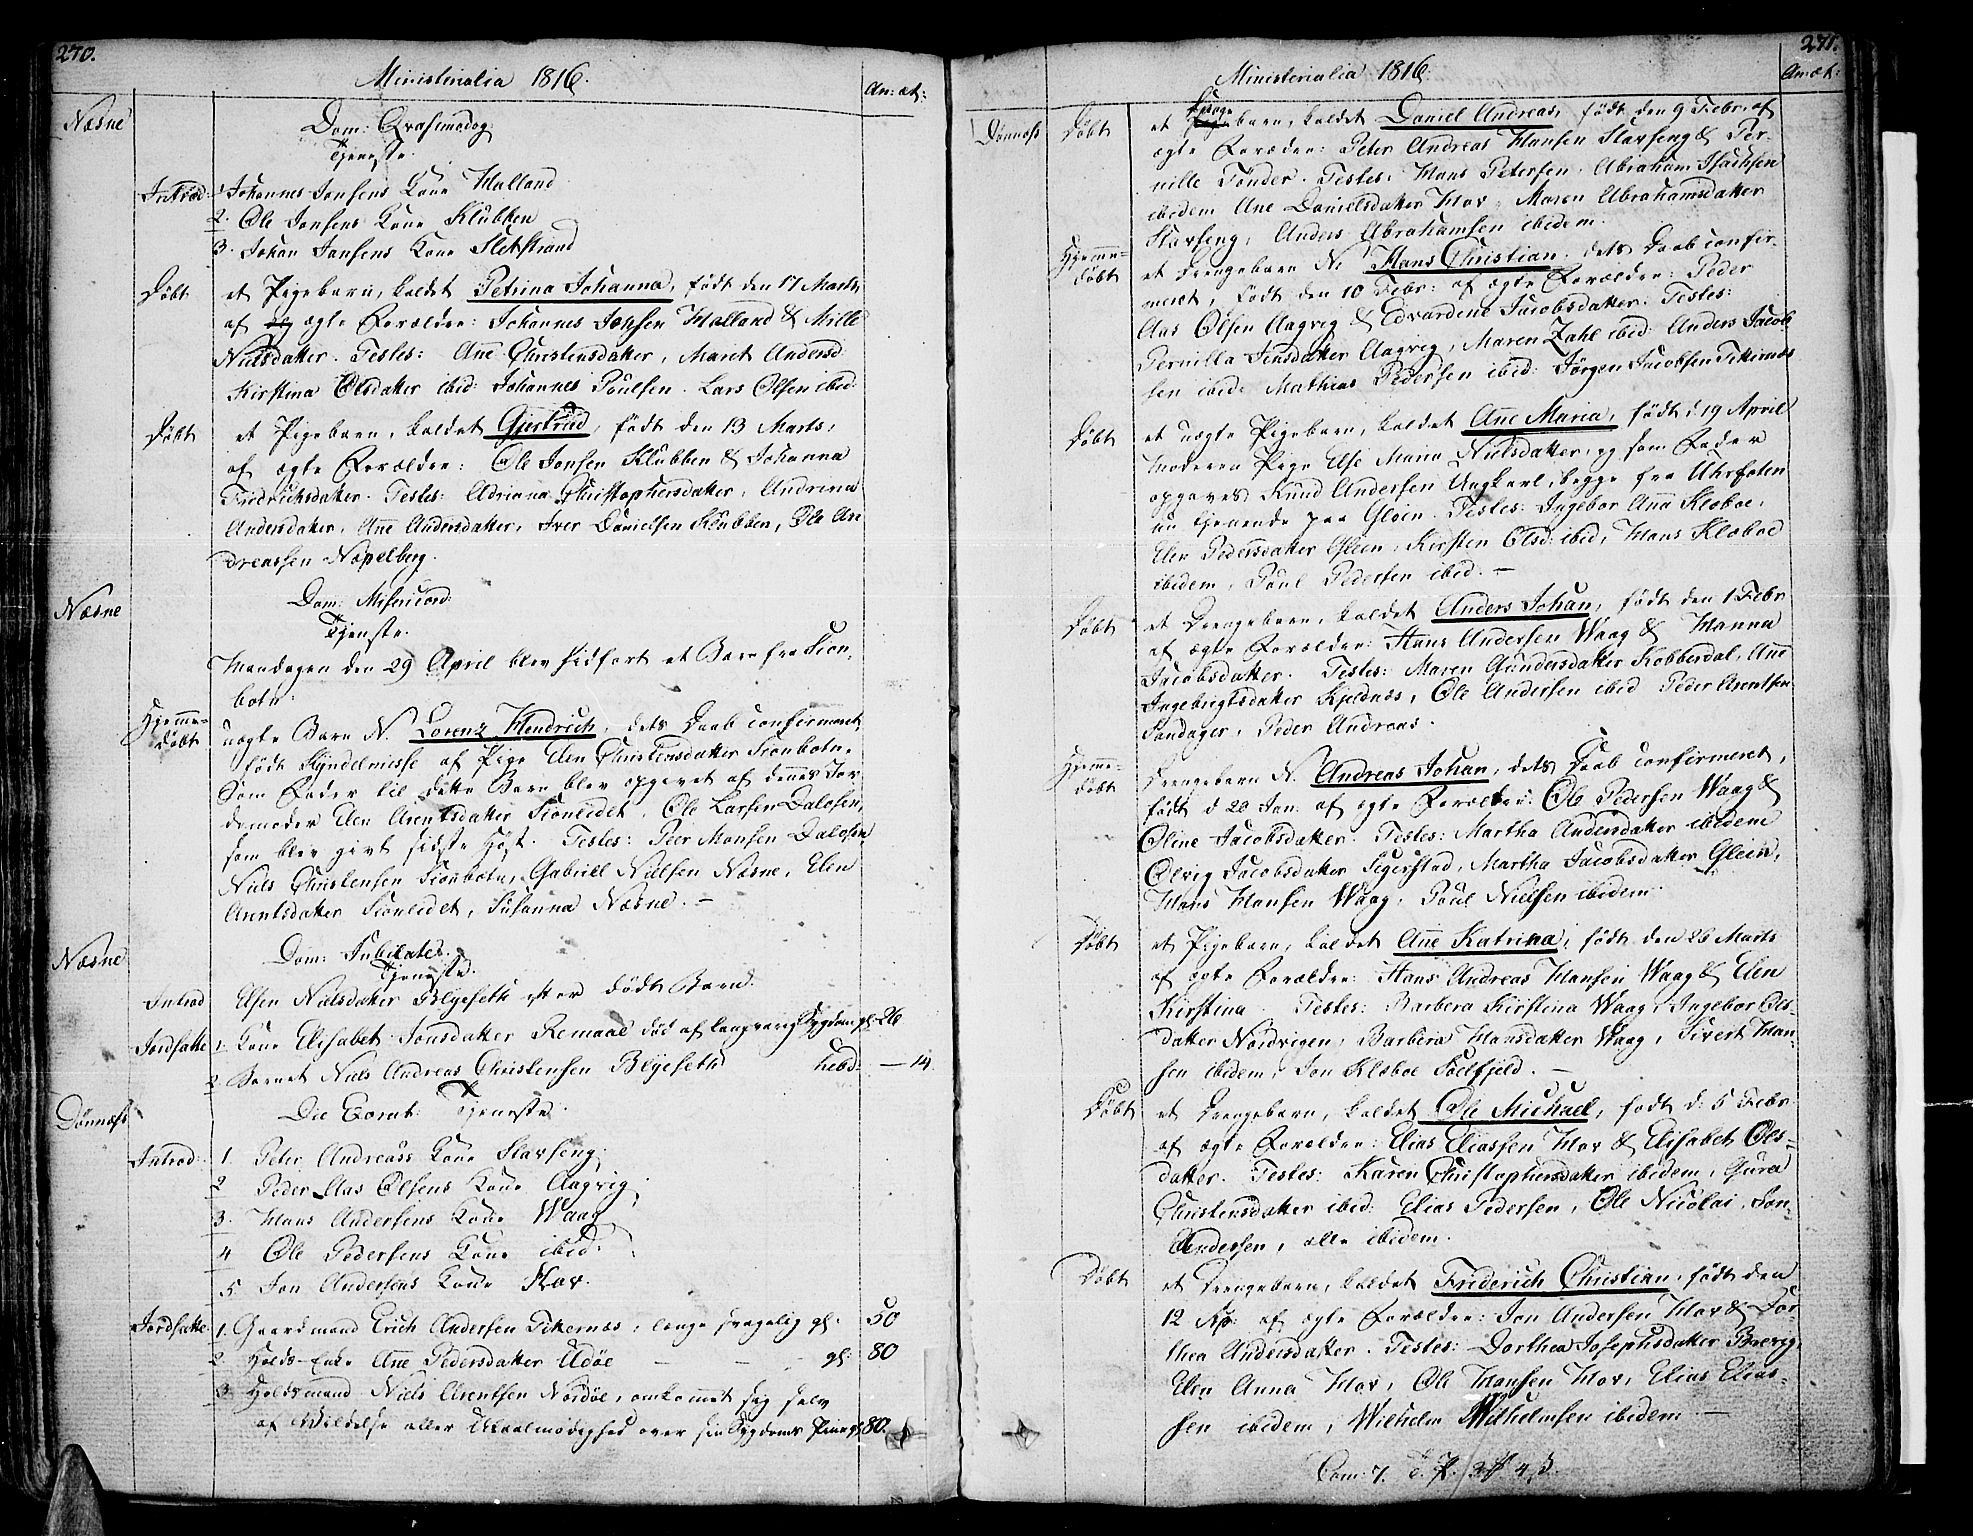 270.
Ministerialia 1816.
An: æt:
Næsne
Dom: Qvasimodog:
Tjeneste.
Introd: 1. Johannes Jonsens Kone Halland
2. Ole Jonsens Kone Klubben
3. Johan Jansens Kone Sletstrand
Døbt et Pigebarn, kaldet Petrina Johanna, født den 17 Marts
af ægte Forældre: Johannes Jonsen Halland & Mille
Nielsdatter. Testes: Ane Christensdatter, Maret Andersd
Kirstina Olsdatter ibid: Johannes Poulsen. Lars Olsen ibid
Døbt et Pigebarn, kaldet Gjertrud, født den 13 Marts,
af ægte Forældre: Ole Jonsen Klubben & Johanna
Fredrichsdatter. Testes: Adriana Christophersdatter, Andrina
Andersdatter, Ane Andersdatter, Iver Danielsen Klubben, Ole An
dreassen Næpelberg.
Næsne
Dom: Misericord:
Tjeneste.
Mandagen den 29 April blev hidført et Barn fra Sion,
botn.
Hjemme-
døbt uægte Barn N. Lorenz Hendrich, dets Daab confirmeret,
født Kyndelmisse af Pige Elen Christensdatter Sionbotn.
Som Fader til dette Barn blev opgivet af dennes Jor
demoder Elen Arentsdatter Sionledet, Ole Larsen Dalosen,
som blev givt sidste Høst. Testes: Peer Hansen Dalosen
Niels Christensen Sionbotn, Gabriel Nielsen Næsne, Elen
Arentsdatter Sionledet, Susanna Næsne. —
Næsne
Dom: Jubilate.
Tjeneste.
Introd Elsen Nielsdatter Blyeseth efter dødt Barn.
Jordsatte 1. Kone Elisabet Jonsdatter Remaae død af langvarig Sygdom gl: 26
2. Barnet Niels Andreas Christensen Blyeseth hebd: — 14.
Dønnæs
Die Corat: Tjeneste.
Introd: 1. Peter Andreass Kone Slavseng,
2 Peder Aas Olsens Kone Aagvig,
3. Hans Andersens Kone Waag
4 Ole Pedersens Kone ibid.
5 Jon Andersens Kone Hov.
Jordsatte 1. Gaardmand Erich Andersen Tekernæs, længe svagelig gl. 50
2. Holds-Enke Ane Pedersdatter Udøe — — gl: 80
3. Holdsmand Niels Arentsen Nordøe, omkommet sig selv
af Vildelse eller Utaalmodighed over sin Sygdoms Pine gl 80.
271.
Ministerialia 1816.
An: æt:
Dønnæs
Døbt et Drengebarn, kaldet Daniel Andreas, født den 9 Febr. af
ægte Forældre: Peter Andreas Hansen Slavseng & Per-
nille Tønder. Testes: Hans Petersen, Abraham Isachsen
ibidem Ane Danielsdatter Hov, Maren Abrahamsdatter
Slavseng, Anders Abrahamsen ibidem.
Hjemme-
døbt et Drengebarn N. Hans Christian, dets Daab confir-
meret, født den 10 Febr: af ægte Forældre: Peder
Aas Olsen Aagvig & Edvardine Jacobsdatter. Testes:
Pernilla Jensdatter Aagvig, Maren Zahl ibid: Anders Jacob
sen ibid: Mathias Pedersen ibid: Jørgen Jacobsen Tekernæs
Døbt et uægte Pigebarn, kaldet Ane Maria, født d. 19 April
Moderen Pige Else Maria Nielsdatter, og som Fader
opgaves Knud Andersen Ungkarl, begge fra Uhrfoten
nu tjenende paa Gleen. Testes: Ingebor Ana Kloboe,
Elen Pedersdatter Gleen, Kirsten Olsd: ibid, Hans Kloboe
ibidem, Poul Pedersen ibid. —
Døbt et Drengebarn, kaldet Anders Johan, født den 1 Febr
af ægte Forældre: Hans Andersen Waag & Hanna
Jacobsdatter. Testes: Maren Gundersdatter Kobberdal, Ane
Ingebrigtsdatter Kjeldnæs, Ole Andersen ibid Peder Arentsen
Sandager, Peder Andreas.
Hjemme-
døbt Drengebarn N. Andreas Johan, dets Daab confirmeret,
født d 20 Jan: af ægte Forældre: Ole Pedersen Waag &
Oline Jacobsdatter. Testes: Martha Andersdatter ibidem
Olvig Jacobsdatter Segerstad, Martha Jacobsdatter Gleen,
Hans Hansen Waag, Poul Nielsen ibidem.
Døbt et Pigebarn, kaldet Ane Katrina, født den 26 Marts
af ægte Forældre: Hans Andreas Hansen Waag & Elen
Kirstina. Testes: Barbera Kirstina Waag, Ingebor Ols-
datter Nordvigen, Barbera Hansdatter Waag, Sivert Han-
sen ibidem, Jon Kloboe Soelfjeld. —
Døbt et Drengebarn, kaldet Ole Michael, født d: 5 Febr:
af ægte Forældre: Elias Eliassen Hov & Elisabet Ols-
datter. Testes: Karen Christophersdatter ibidem, Gura
Christensdatter ibid: Elias Pedersen, Ole Nicolai, Jon
Andersen, alle ibidem.
Døbt et Drengebarn, kaldet Friderich Christian, født den
12 Ap: af ægte Forældre: Jon Andersen Hov & Dor-
thea Andersdatter. Testes: Dorthea Josephsdatter Brevig,
Elen Anna Hov, Ole Hansen Hov, Elias Elias-
sen ibidem, Wilhelm Wilhelmsen ibidem —
Com: 7.